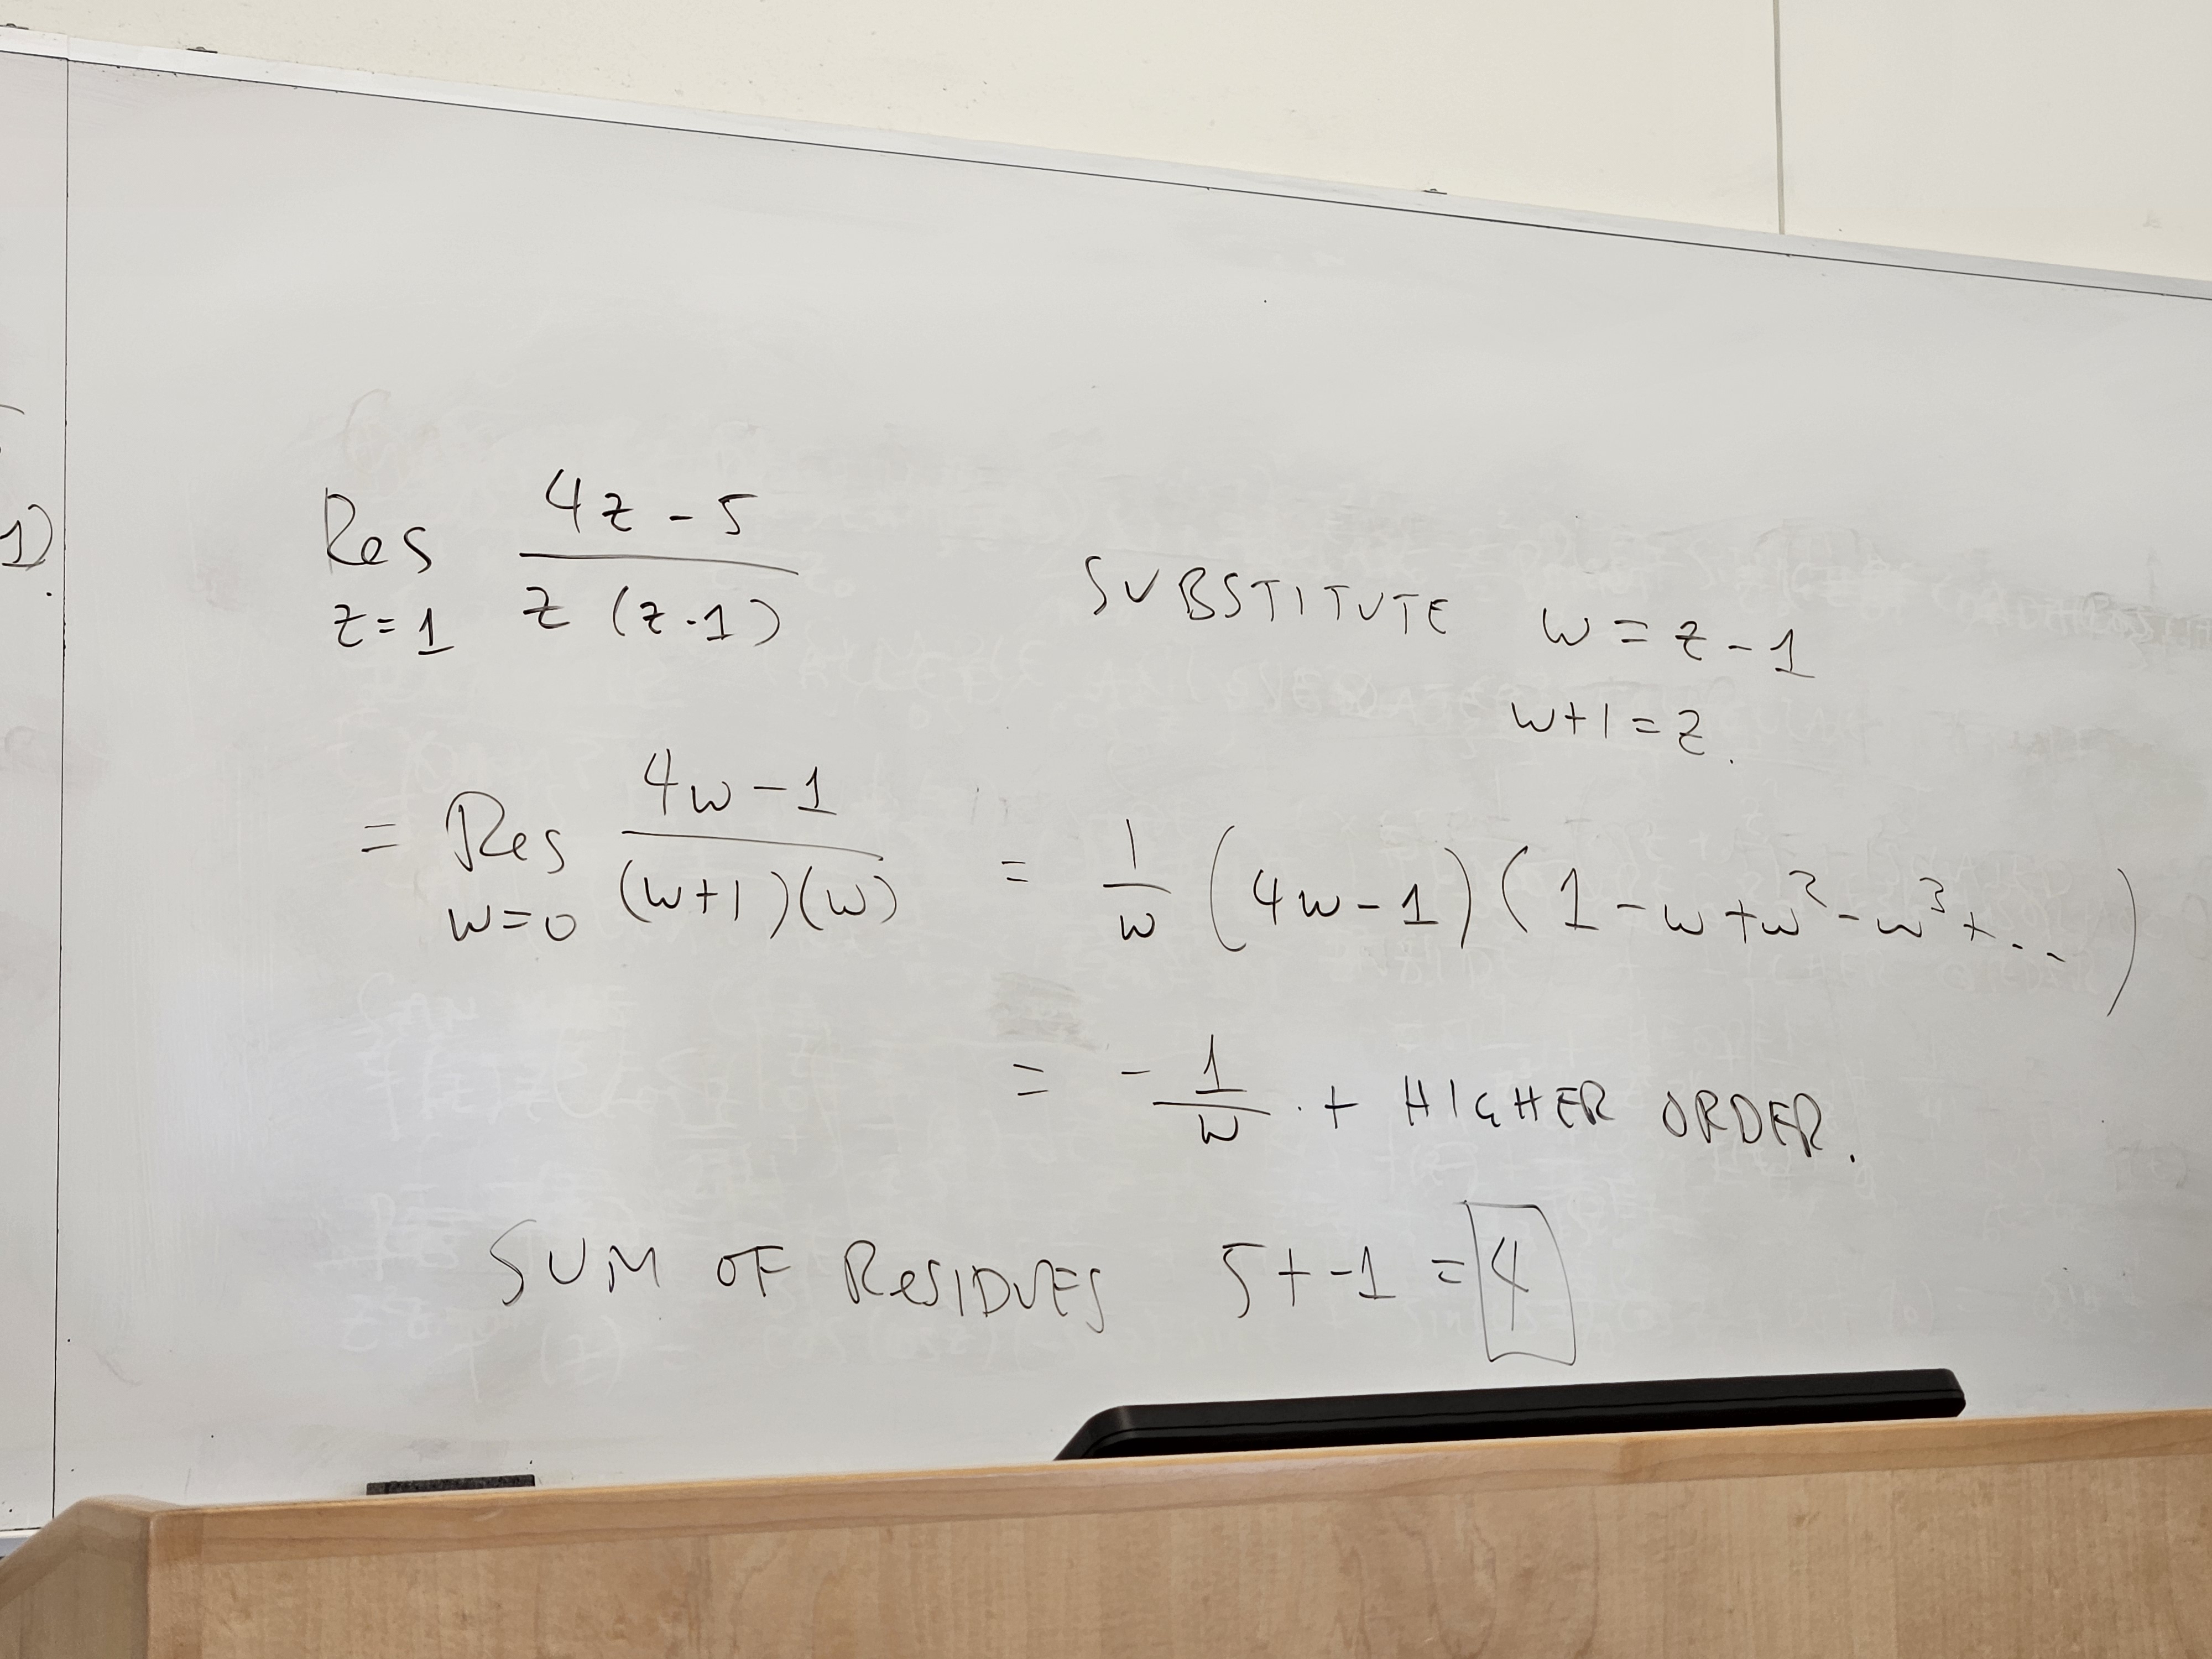 1).
Res 4z - 5
z=1 z (z-1)
SUBSTITUTE w = z - 1
w+1 = z.
= Res 4w - 1 / (w+1)(w) = 1/w (4w - 1)(1 - w + w² - w³ + ...)
w=0
= - 1/w . + HIGHER ORDER.
SUM OF RESIDUES 5 + -1 = 4